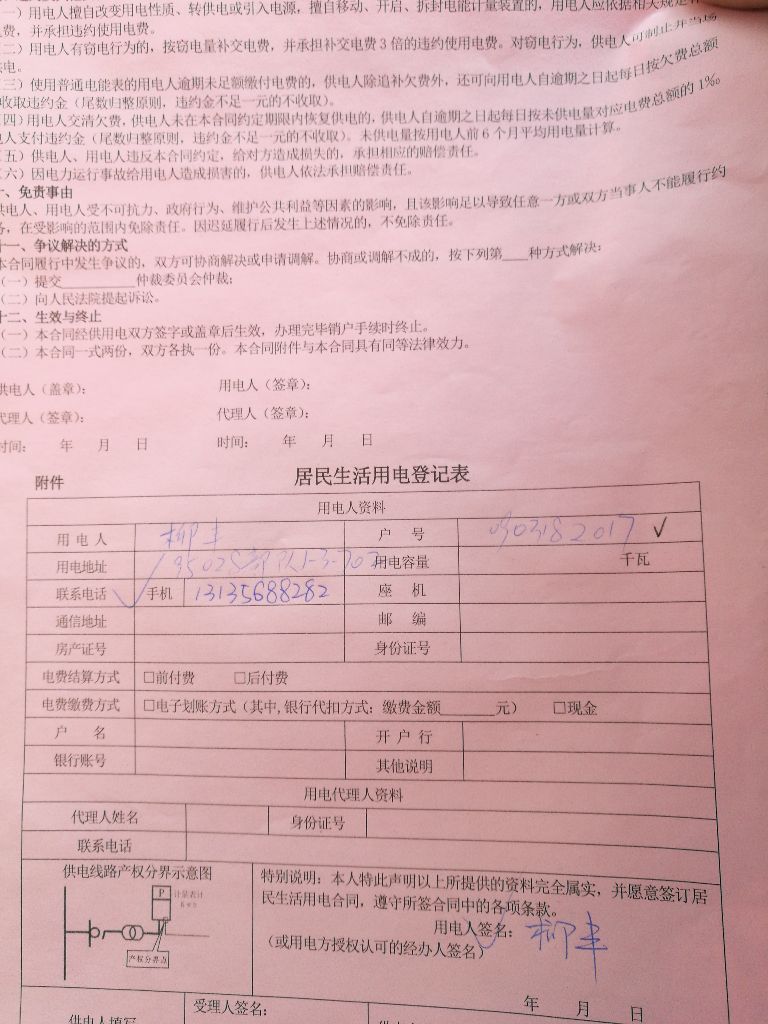 一）用电人擅自改变用电性质、转供电或引入电源，擅自移动、开启、拆封电能计量装置的，用电人应依据相关规定
电费，并承担违约使用电费。
二）用电人有窃电行为的，按窃电量补交电费，并承担补交电费3倍的违约使用电费。对窃电行为，供电人可制止并当场
供电。
三）使用普通电能表的用电人逾期未足额缴付电费的，供电人除追补欠费外，还可向用电人自逾期之日起每日按欠费总额
收取违约金（尾数归整原则，违约金不足一元的不收取）。
四）用电人交清欠费，供电人未在本合同约定期限内恢复供电的，供电人自逾期之日起每日按未供电量对应电费总额的1‰
电人支付违约金（尾数归整原则，违约金不足一元的不收取）。未供电量按用电人前6个月平均用电量计算。
五）供电人、用电人违反本合同约定，给对方造成损失的，承担相应的赔偿责任。
六）因电力运行事故给用电人造成损害的，供电人依法承担赔偿责任。
十、免责事由
供电人、用电人受不可抗力、政府行为、维护公共利益等因素的影响，且该影响足以导致任意一方或双方当事人不能履行约
务，在受影响的范围内免除责任。因迟延履行后发生上述情况的，不免除责任。
十一、争议解决的方式
本合同履行中发生争议的，双方可协商解决或申请调解。协商或调解不成的，按下列第____种方式解决：
（一）提交__________仲裁委员会仲裁；
（二）向人民法院提起诉讼。
十二、生效与终止
（一）本合同经供用电双方签字或盖章后生效，办理完毕销户手续时终止。
（二）本合同一式两份，双方各执一份。本合同附件与本合同具有同等法律效力。
供电人（盖章）： 用电人（签章）：
代理人（签章）： 代理人（签章）：
时间： 年 月 日 时间： 年 月 日
附件 居民生活用电登记表
用电人资料
用电人 柳丰 户号 0903182017 ✓
用电地址 95028部队1-3-703 用电容量 千瓦
联系电话 手机 13135688282 座机
通信地址 邮编
房产证号 身份证号
电费结算方式 □前付费 □后付费
电费缴费方式 □电子划账方式（其中,银行代扣方式：缴费金额_______元） □现金
户名 开户行
银行账号 其他说明
用电代理人资料
代理人姓名 身份证号
联系电话
供电线路产权分界示意图
P 计量表计
产权分界点
特别说明：本人特此声明以上所提供的资料完全属实，并愿意签订居
民生活用电合同，遵守所签合同中的各项条款。
用电人签名： 柳丰
（或用电方授权认可的经办人签名）
年 月 日
供电人填写 受理人签名：